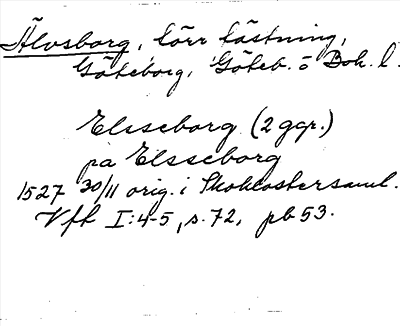 Älvsborg, förr fästning,
Göteborg, Göteb. o Boh. l.
Elsseborg (2 ggr.)
på Elsseborg
1527 30/11 orig. i Skoklostersaml.
Vfk I:4-5, s. 72, pb 53.